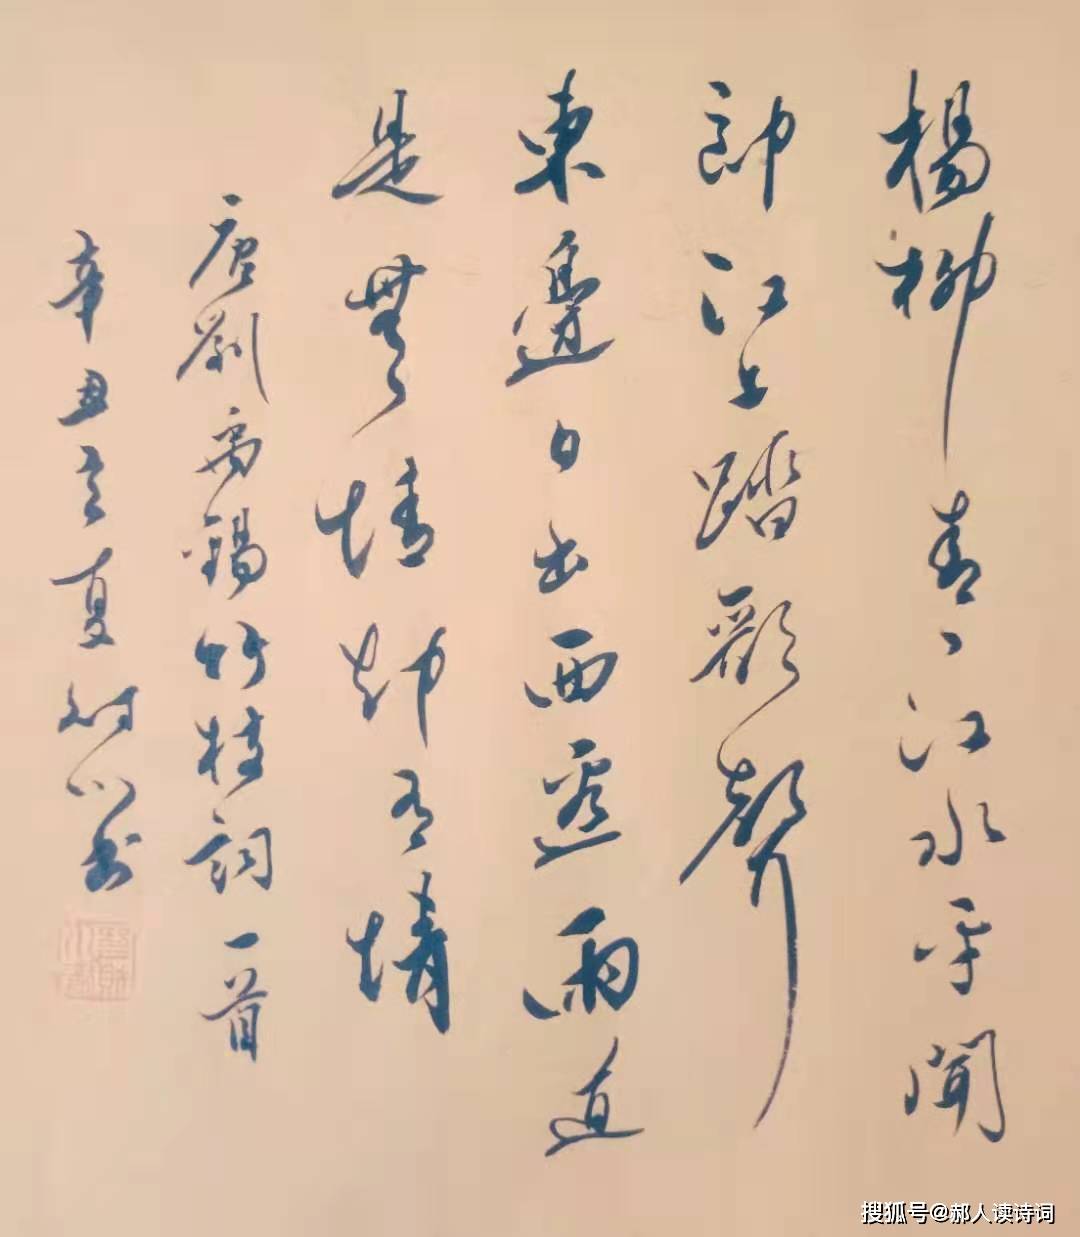 楊柳青〻江水平聞
郎江上踏歌聲
東邊日出西邊雨道
是無情卻有情
唐劉禹錫竹枝詞一首
辛丑立夏書
搜狐号@郝人读诗词